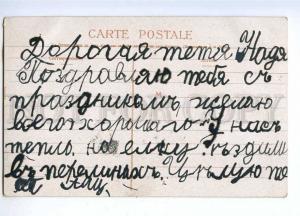 CARTE POSTALE
Дорогая тетя Надя
Поздравляю тебя съ
праздникомъ желаю
всего хорошаго у насъ
тепло, на елку ѣздили
въ перелинахъ. Цѣлую те
бя